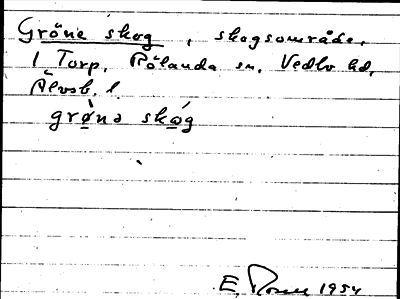 Gröne skog, skogsområde,
1 Torp, Rölanda sn, Vedbo hd,
Älvsb. l.
grø̀nə skóg
E. 1954